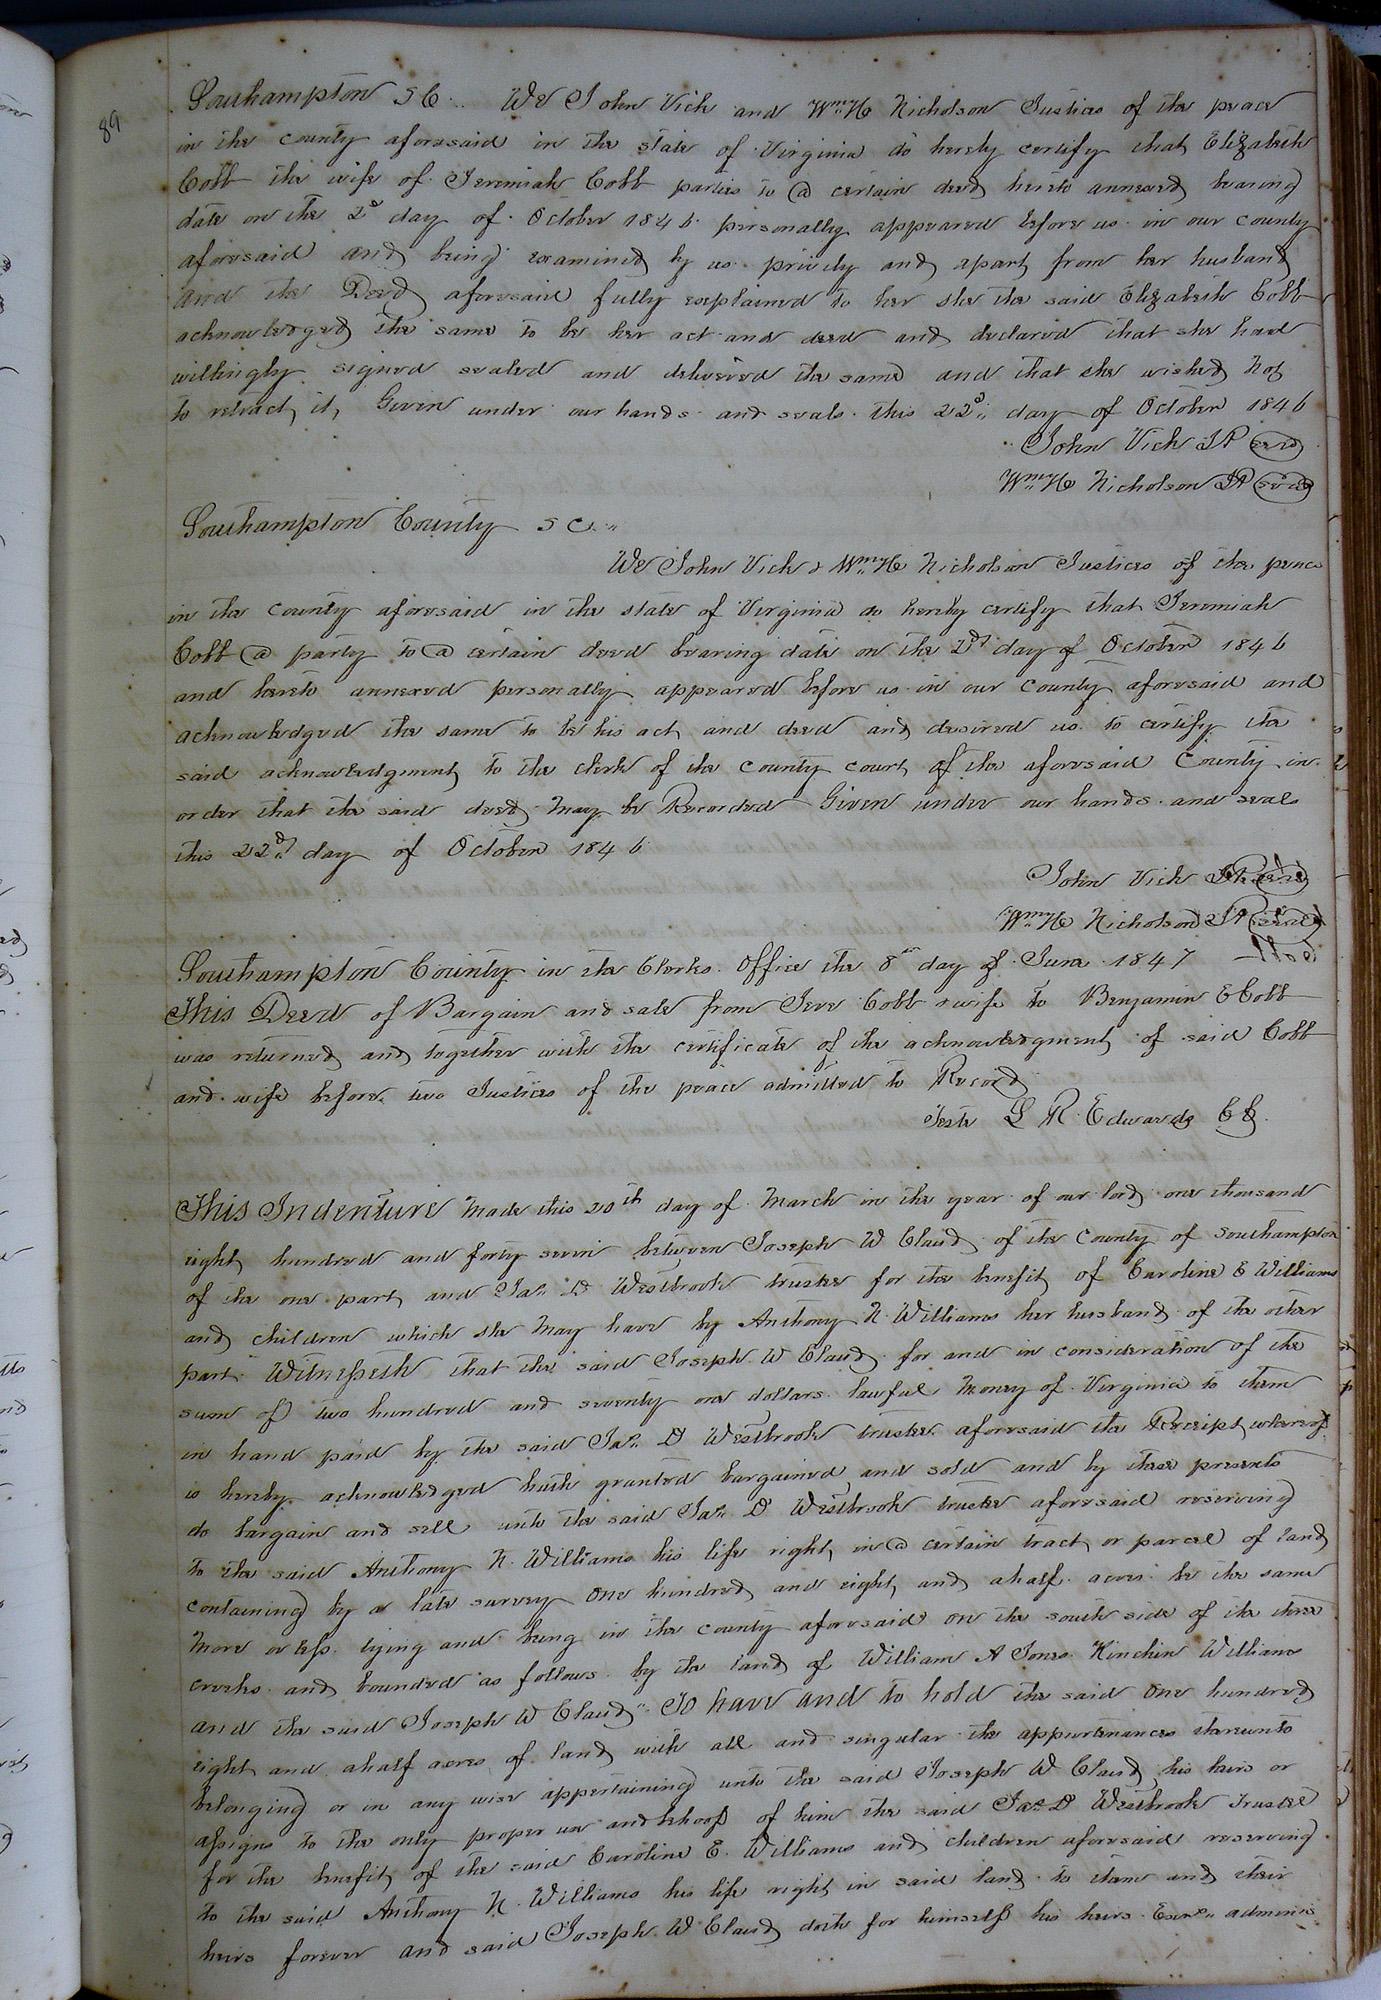 89
Southampton S C. We John Vick and Wm H Nicholson Justices of the peace
in the county aforesaid in the state of Virginia do hereby certify that Elizabeth
Cobb the wife of Jeremiah Cobb parties to a certain deed hereto annexed bearing
date on the 2d day of October 1846 personally appeared before us in our county
aforesaid and being examined by us privily and apart from her husband
and the Deed aforesaid fully explained to her she the said Elizabeth Cobb
acknowledged the same to be her act and deed and declared that she had
willingly signed sealed and delivered the same and that she wished not
to retract it, Given under our hands and seals this 22d day of October 1846
John Vick JP Seal
Wm H Nicholson JP Seal
Southampton County S C.
We John Vick & Wm H Nicholson Justices of the peace
in the county aforesaid in the state of Virginia do hereby certify that Jeremiah
Cobb a party to a certain deed bearing date on the 2d day of October 1846
and hereto annexed personally appeared before us in our county aforesaid and
acknowledged the same to be his act and deed and desired us to certify the
said acknowledgment to the clerk of the county court of the aforesaid County in
order that the said deed may be Recorded Given under our hands and seals
this 22d day of October 1846
John Vick JP Seal
Wm H Nicholson JP Seal
Southampton County in the Clerks Office the 8th day of June 1847
This Deed of Bargain and sale from Jere Cobb & wife to Benjamin E Cobb
was returned and together with the certificate of the acknowledgment of said Cobb
and wife before two Justices of the peace admitted to Record
Teste L R Edwards CC
This Indenture Made this 20th day of March in the year of our lord one thousand
eight hundred and forty seven between Joseph W Claud of the County of Southampton
of the one part and Jas. D Westbrook trustee for the benefit of Caroline E Williams
and children which she may have by Anthony N. Williams her husband of the other
part Witnesseth that the said Joseph W Claud for and in consideration of the
sum of two hundred and seventy one dollars lawful money of Virginia to them
in hand paid by the said Jas. D Westbrook trustee aforesaid the Receipt whereof
is hereby acknowledged hath granted bargained and sold and by these presents
do bargain and sell unto the said Jas. D Westbrook trustee aforesaid reserving
to the said Anthony N. Williams his life right in a certain tract or parcel of land
containing by a late survey one hundred and eight and a half acres be the same
more or less lying and being in the county aforesaid on the south side of the three
creeks and bounded as follows by the land of William A Jones Kinchin Williams
and the said Joseph W Claud To have and to hold the said one hundred
eight and a half acres of land with all and singular the appurtenances thereunto
belonging or in any wise appertaining unto the said Joseph W Claud his heirs or
assigns to the only proper use and behoof of him the said Jas. D Westbrook Trustee
for the benefit of the said Caroline E. Williams and children aforesaid reserving
to the said Anthony N. Williams his life right in said land to them and their
heirs forever and said Joseph W Claud doth for himself his heirs Exors. adminis